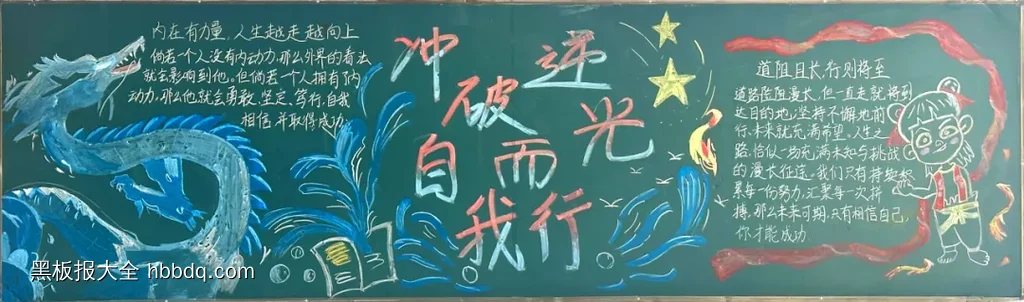 内在有力量,人生越走越向上
倘若一个人没有内动力,那么外界的看法
就会影响到他。但倘若一个人拥有内
动力,那么他就会勇敢、坚定、笃行、自我
相信并取得成功
冲破自我
逆光而行
道阻且长,行则将至
道路险阻漫长,但一直走就将到
达目的地,坚持不懈地前
行,未来就充满希望。人生之
路,恰似一场充满未知与挑战
的漫长征途。我们只有持续积
累每一份努力,汇聚每一次拼
搏,那么未来可期,只有相信自己,
你才能成功
黑板报大全 hbbdq.com